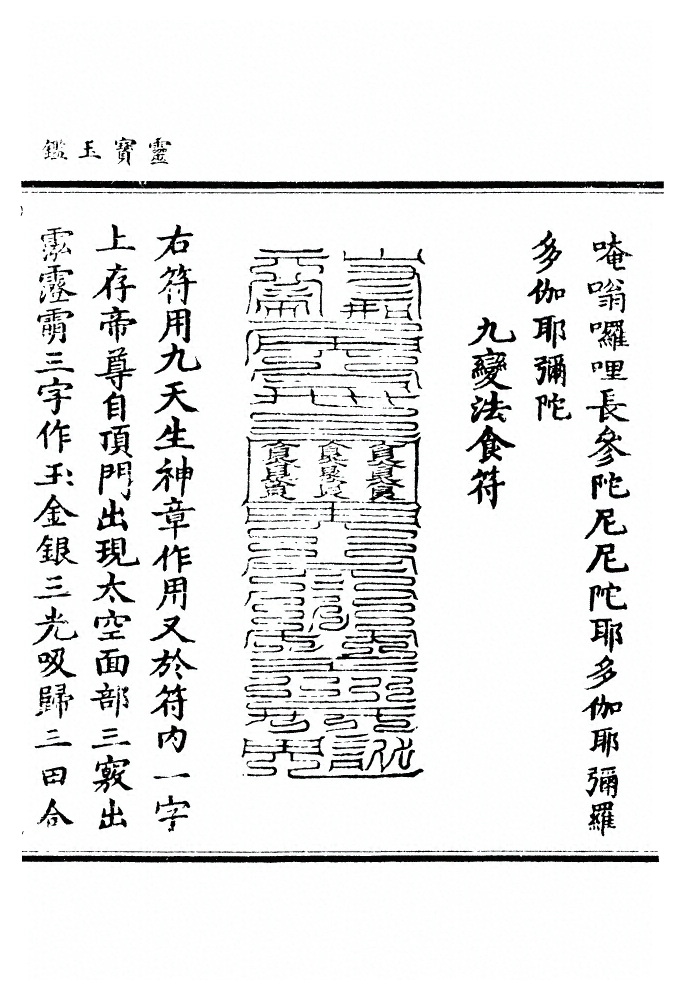 靈寶玉鑑
唵嗡囉哩長參陀尼尼陀耶多伽耶彌羅
多伽耶彌陀
九變法食符
右符用九天生神章作用又於符内一字
上存帝尊自頂門出現太空面部三竅出
三字作玉金銀三光吸歸三田合